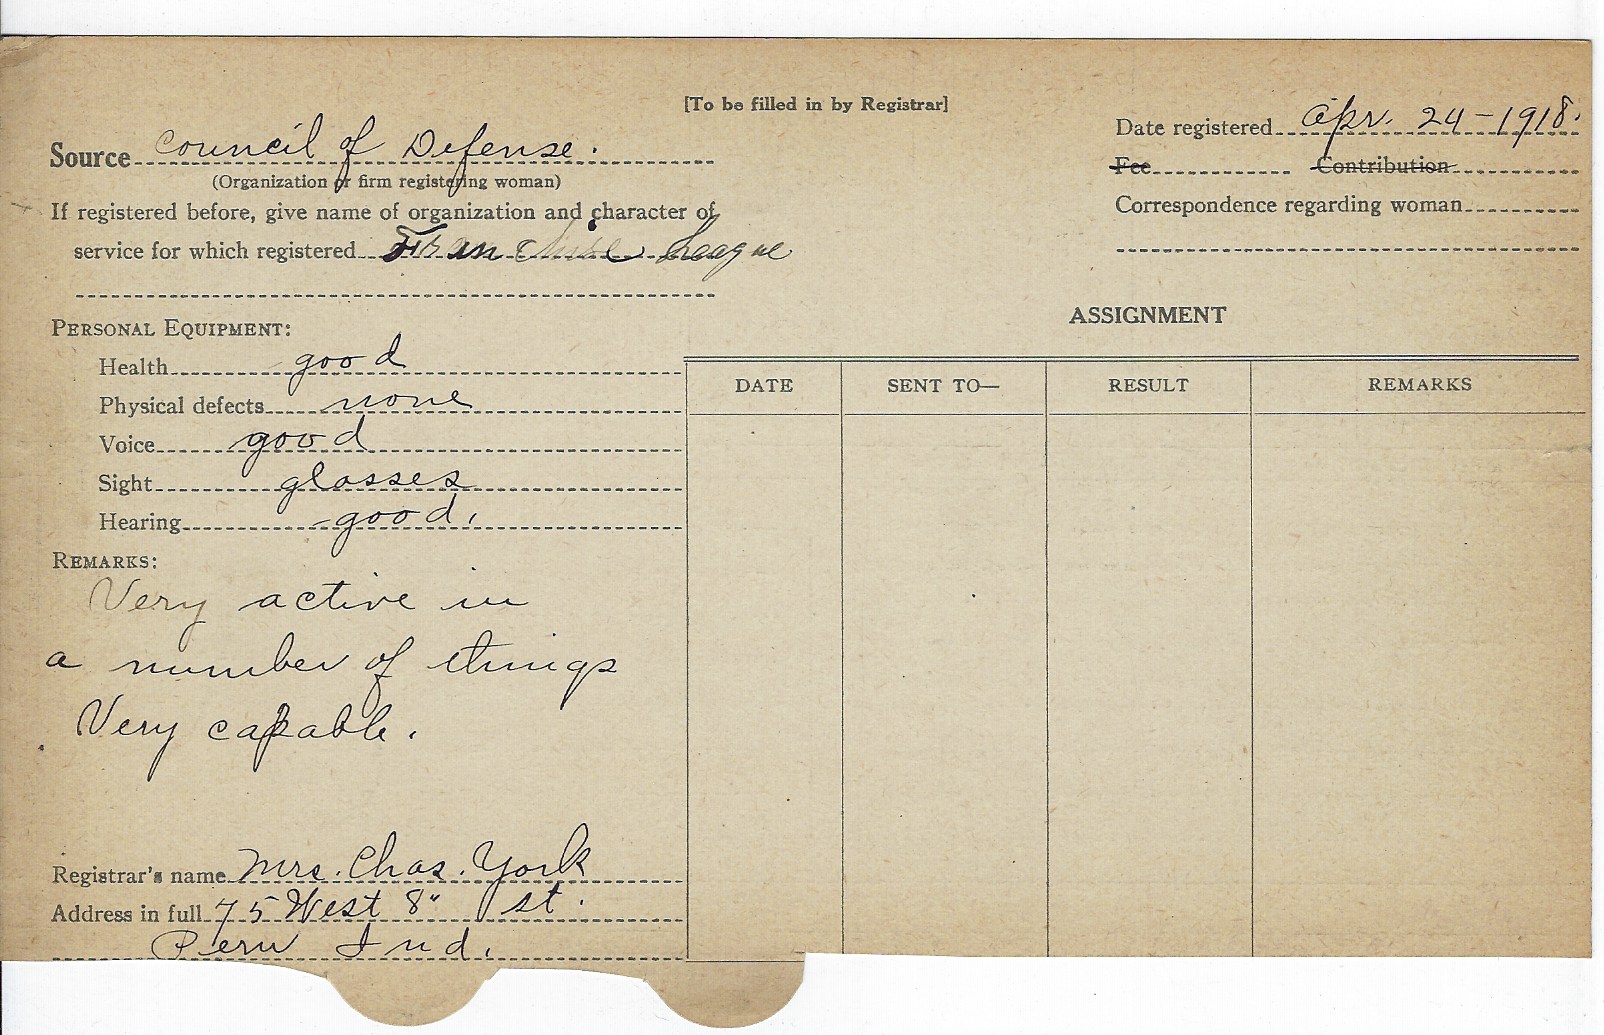 [To be filled in by Registrar]
Source Council of Defense.
(Organization or firm registering woman)
If registered before, give name of organization and character of
service for which registered Franchise League
Date registered Apr. 24-1918.
Fee Contribution
Correspondence regarding woman
PERSONAL EQUIPMENT:
Health good
Physical defects none
Voice good
Sight glasses
Hearing good.
REMARKS:
Very active in
a number of things
Very capable.
Registrar's name Mrs. Chas. York
Address in full 75 West 8" st.
Peru Ind.
ASSIGNMENT
DATE SENT TO— RESULT REMARKS